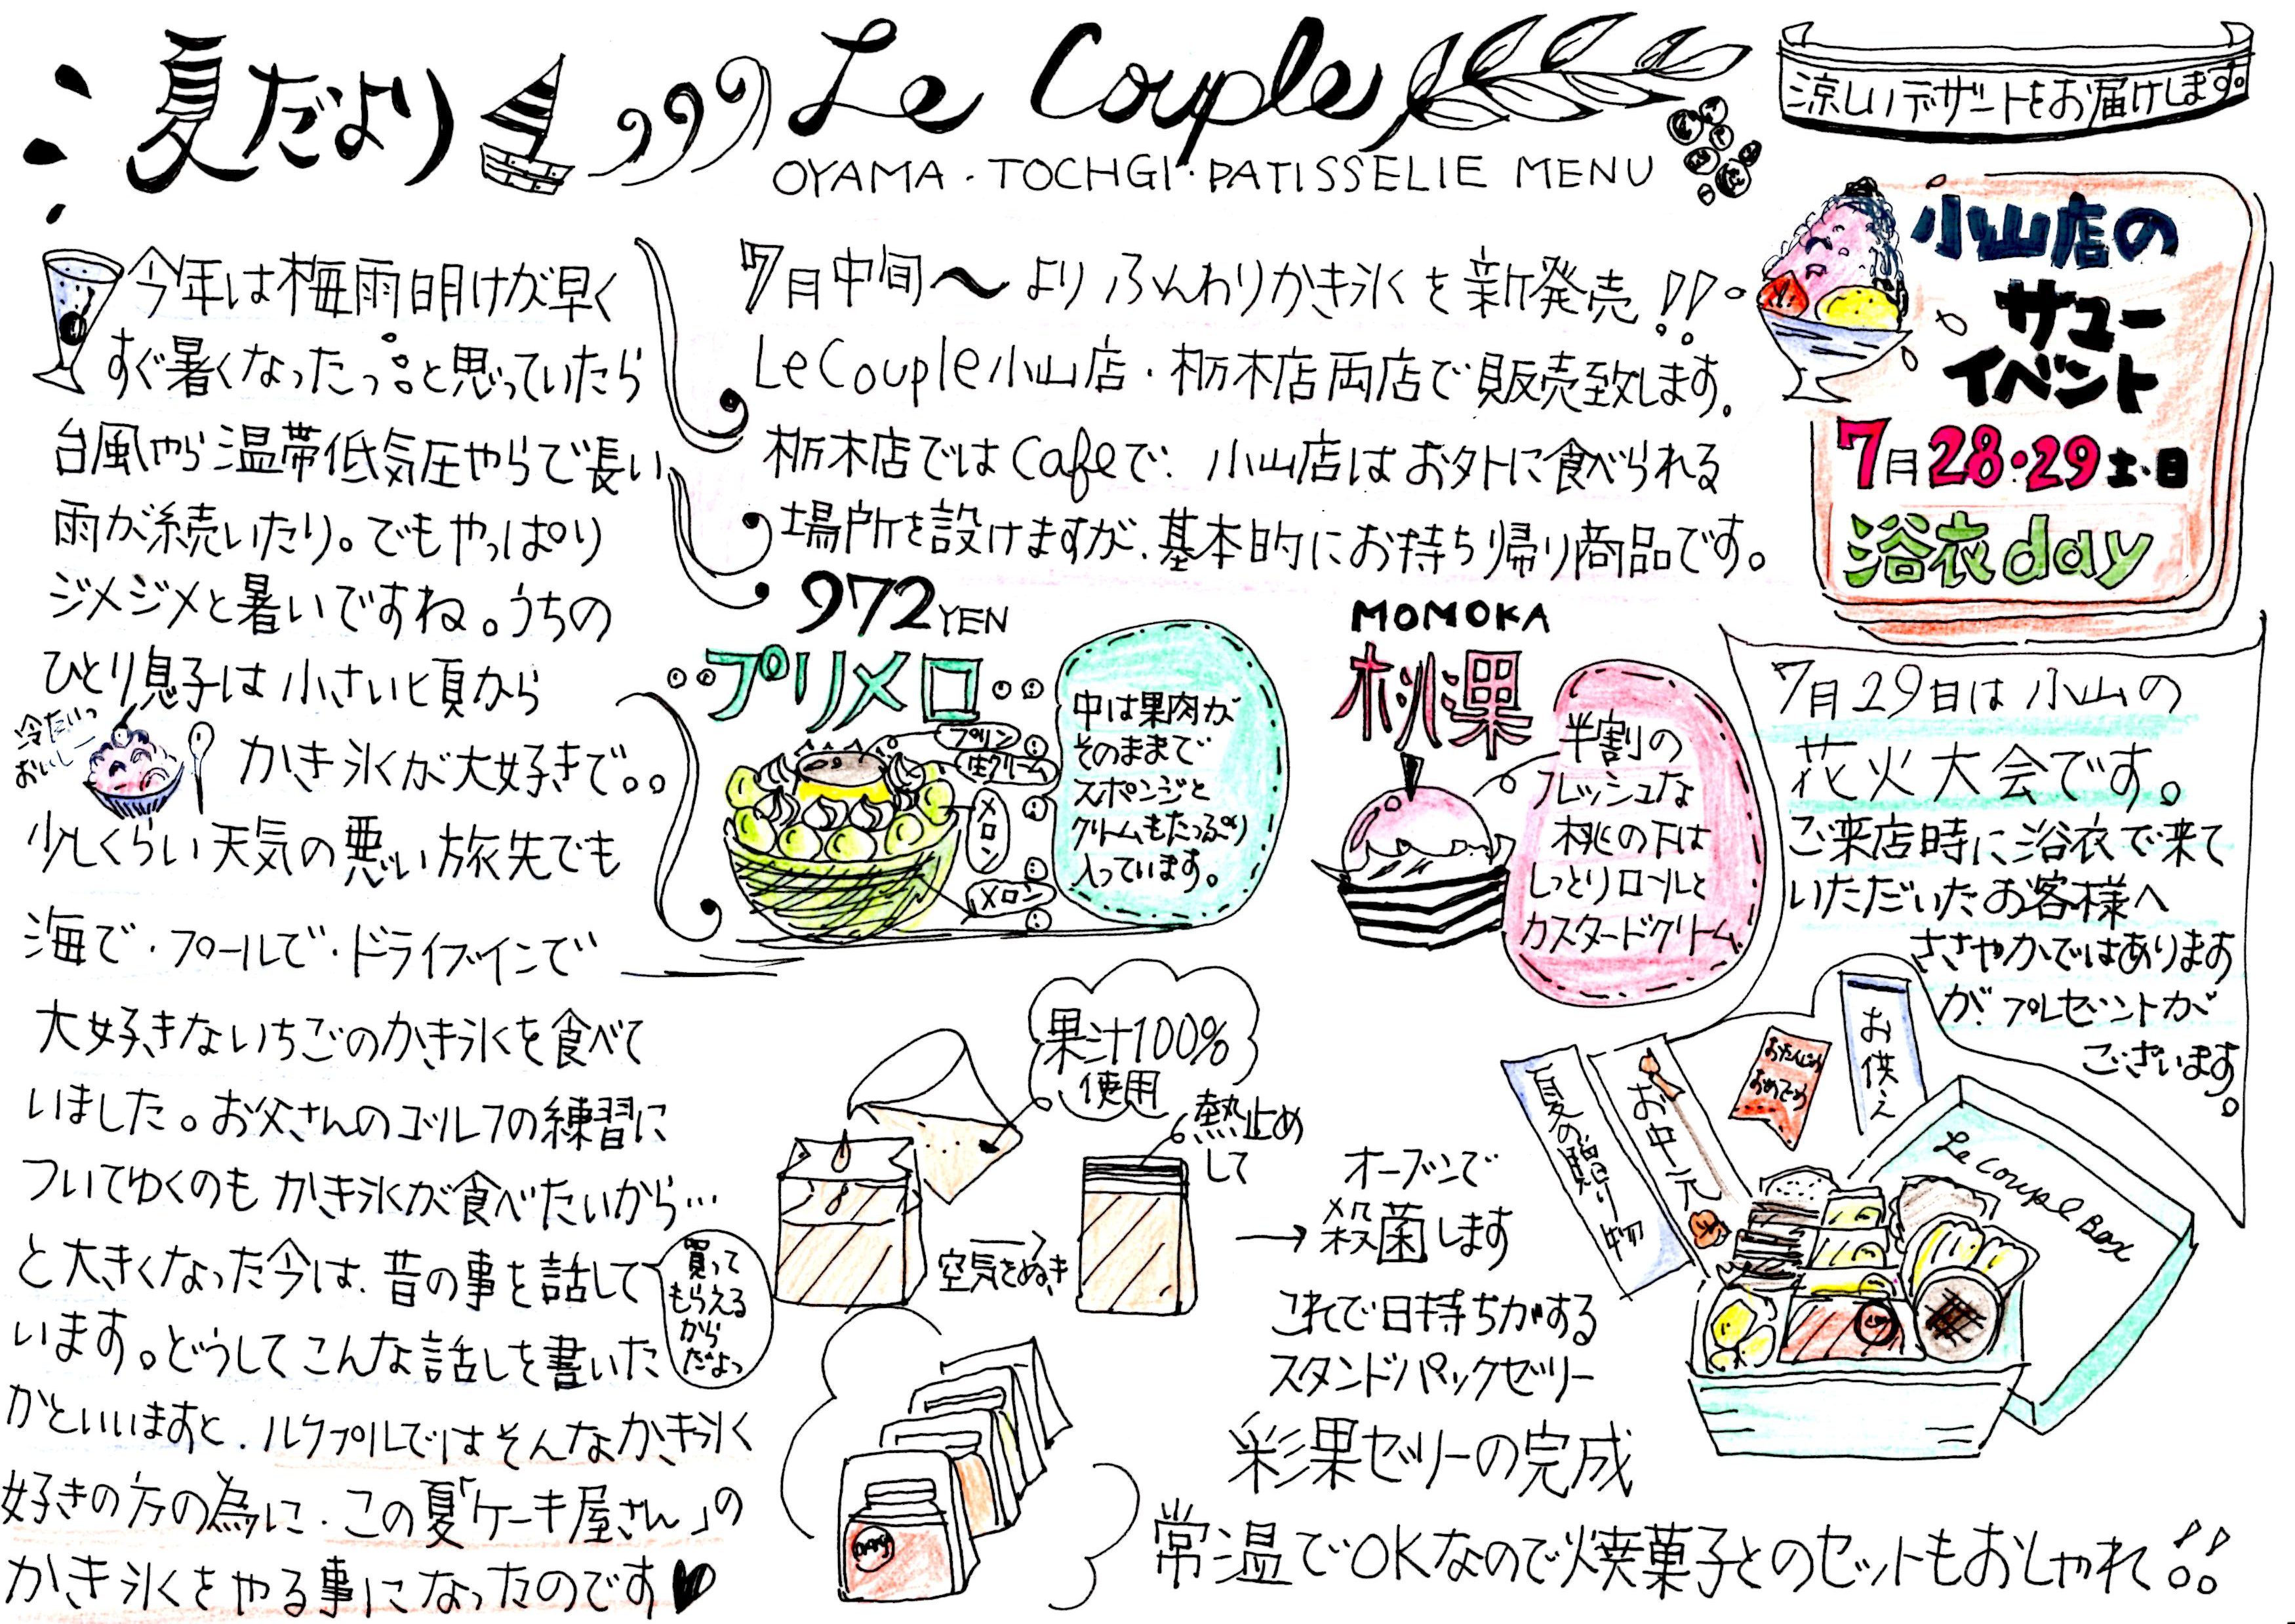 夏だより
Le Couple
OYAMA・TOCHGI・PATISSELIE MENU
涼しいデザートをお届けします。
今年は梅雨明けが早く
すぐ暑くなったっ。。と思っていたら
台風やら温帯低気圧やらで長い
雨が続いたり。でもやっぱり
ジメジメと暑いですね。うちの
ひとり息子は小さい頃から
冷たいっ
おいしー
かき氷が大好きで。。
少しくらい天気の悪い旅先でも
海で・プールで・ドライブインで
大好きないちごのかき氷を食べて
いました。お父さんのゴルフの練習に
ついてゆくのもかき氷が食べたいから…
と大きくなった今は、昔の事を話して
います。どうしてこんな話しを書いた
かといいますと、ルクプルではそんなかき氷
好きの方の為に、この夏「ケーキ屋さん」の
かき氷をやる事になったのです♥
買って
もらえる
から
だよっ
7月中旬〜よりふんわりかき氷を新発売!!
Le Couple小山店・栃木店両店で販売致します。
栃木店ではCafeで、小山店はお外に食べられる
場所を設けますが、基本的にお持ち帰り商品です。
小山店の
サマー
イベント
7月28・29土・日
浴衣day
972YEN
プリメロ
プリン
生クリーム
メロン
メロン
中は果肉が
そのままで
スポンジと
クリームもたっぷり
入っています。
MOMOKA
桃果
半割の
フレッシュな
桃の下は
しっとりロールと
カスタードクリーム
7月29日は小山の
花火大会です。
ご来店時に浴衣で来て
いただいたお客様へ
ささやかではあります
が、プレゼントが
ございます。
果汁100%
使用
空気をぬき
熱止め
して
→オーブンで
殺菌します
これで日持ちがする
スタンドパックゼリー
彩果ゼリーの完成
夏の贈り物
お中元
おたんじょうび
おめでとう
お供え
Le Couple Box
常温でOKなので焼菓子とのセットもおしゃれ!!